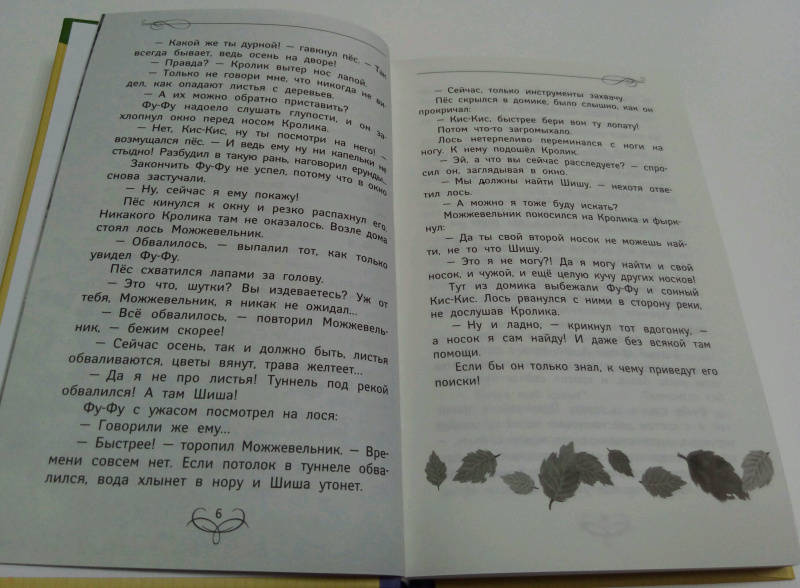 — Какой же ты дурной! — гавкнул пёс. — Так
всегда бывает, ведь осень на дворе!
— Правда? — Кролик вытер нос лапой.
— Только не говори мне, что никогда не ви-
дел, как опадают листья с деревьев.
— А их можно обратно приставить?
Фу-Фу надоело слушать глупости, и он за-
хлопнул окно перед носом Кролика.
— Нет, Кис-Кис, ну ты посмотри на него! —
возмущался пёс. — И ведь ему ни капельки не
стыдно! Разбудил в такую рань, наговорил ерунды...
Закончить Фу-Фу не успел, потому что в окно
снова застучали.
— Ну, сейчас я ему покажу!
Пёс кинулся к окну и резко распахнул его.
Никакого Кролика там не оказалось. Возле дома
стоял лось Можжевельник.
— Обвалилось, — выпалил тот, как только
увидел Фу-Фу.
Пёс схватился лапами за голову.
— Это что, шутки? Вы издеваетесь? Уж от
тебя, Можжевельник, я никак не ожидал...
— Всё обвалилось, — повторил Можжевель-
ник, — бежим скорее!
— Сейчас осень, так и должно быть, листья
обваливаются, цветы вянут, трава желтеет...
— Да я не про листья! Туннель под рекой
обвалился! А там Шиша!
Фу-Фу с ужасом посмотрел на лося:
— Говорили же ему...
— Быстрее! — торопил Можжевельник. — Вре-
мени совсем нет. Если потолок в туннеле обва-
лился, вода хлынет в нору и Шиша утонет.
6
— Сейчас, только инструменты захвачу.
Пёс скрылся в домике, было слышно, как он
прокричал:
— Кис-Кис, быстрее бери вон ту лопату!
Потом что-то загромыхало.
Лось нетерпеливо переминался с ноги на
ногу. К нему подошёл Кролик.
— Эй, а что вы сейчас расследуете? — спро-
сил он, заглядывая в окно.
— Мы должны найти Шишу, — нехотя отве-
тил лось.
— А можно я тоже буду искать?
Можжевельник покосился на Кролика и фырк-
нул:
— Да ты свой второй носок не можешь най-
ти, не то что Шишу.
— Это я не могу?! Да я могу найти и свой
носок, и чужой, и ещё целую кучу других носков!
Тут из домика выбежали Фу-Фу и сонный
Кис-Кис. Лось рванулся с ними в сторону реки,
не дослушав Кролика.
— Ну и ладно, — крикнул тот вдогонку, —
а носок я сам найду! И даже без всякой там
помощи.
Если бы он только знал, к чему приведут его
поиски!